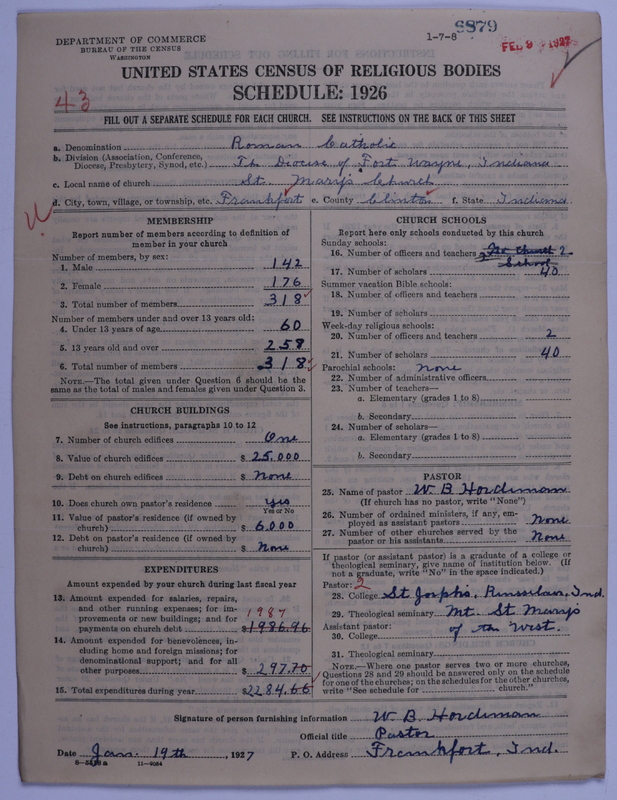 6879
1-7-8
FEB 9 1927
DEPARTMENT OF COMMERCE
BUREAU OF THE CENSUS
WASHINGTON
UNITED STATES CENSUS OF RELIGIOUS BODIES
43
SCHEDULE: 1926
FILL OUT A SEPARATE SCHEDULE FOR EACH CHURCH. SEE INSTRUCTIONS ON THE BACK OF THIS SHEET
a. Denomination Roman Catholic
b. Division (Association, Conference,
Diocese, Presbytery, Synod, etc.) The Diocese of Fort Wayne, Indiana
c. Local name of church St. Mary's Church
d. City, town, village, or township, etc. Frankfort e. County Clinton f. State Indiana
MEMBERSHIP
Report number of members according to definition of
member in your church
Number of members, by sex:
1. Male 142
2. Female 176
3. Total number of members 318
Number of members under and over 13 years old:
4. Under 13 years of age 60
5. 13 years old and over 258
6. Total number of members 318
NOTE.—The total given under Question 6 should be the
same as the total of males and females given under Question 3.
CHURCH BUILDINGS
See instructions, paragraphs 10 to 12
7. Number of church edifices One
8. Value of church edifices $ 25.000
9. Debt on church edifices $ None
10. Does church own pastor's residence Yes
Yes or No
11. Value of pastor's residence (if owned by
church) $ 6.000
12. Debt on pastor's residence (if owned by
church) $ None
EXPENDITURES
Amount expended by your church during last fiscal year
13. Amount expended for salaries, repairs,
and other running expenses; for im-
provements or new buildings; and for 1987
payments on church debt $ 1986.96
14. Amount expended for benevolences, in-
cluding home and foreign missions; for
denominational support; and for all
other purposes $ 297.70
15. Total expenditures during year $ 2284.66
CHURCH SCHOOLS
Report here only schools conducted by this church
Sunday schools:
16. Number of officers and teachers 2
School
17. Number of scholars 40
Summer vacation Bible schools:
18. Number of officers and teachers
19. Number of scholars
Week-day religious schools:
20. Number of officers and teachers 2
21. Number of scholars 40
Parochial schools: None
22. Number of administrative officers
23. Number of teachers—
a. Elementary (grades 1 to 8)
b. Secondary
24. Number of scholars—
a. Elementary (grades 1 to 8)
b. Secondary
PASTOR
25. Name of pastor W. B. Hordeman
(If church has no pastor, write "None")
26. Number of ordained ministers, if any, em-
ployed as assistant pastors None
27. Number of other churches served by the
pastor or his assistants None
If pastor (or assistant pastor) is a graduate of a college or
theological seminary, give name of institution below. (If
not a graduate, write "No" in the space indicated.)
Pastor: 2
28. College St Josephs, Rensselaer, Ind.
29. Theological seminary Mt. St Marys
Assistant pastor: of the West.
30. College
31. Theological seminary
NOTE.—Where one pastor serves two or more churches,
Questions 28 and 29 should be answered only on the schedule
for one of the churches; on the schedules for the other churches,
write "See schedule for church."
Signature of person furnishing information W. B. Hordeman
Official title Pastor
Date Jan. 19th, 1927 P. O. Address Frankfort, Ind.
11-9054